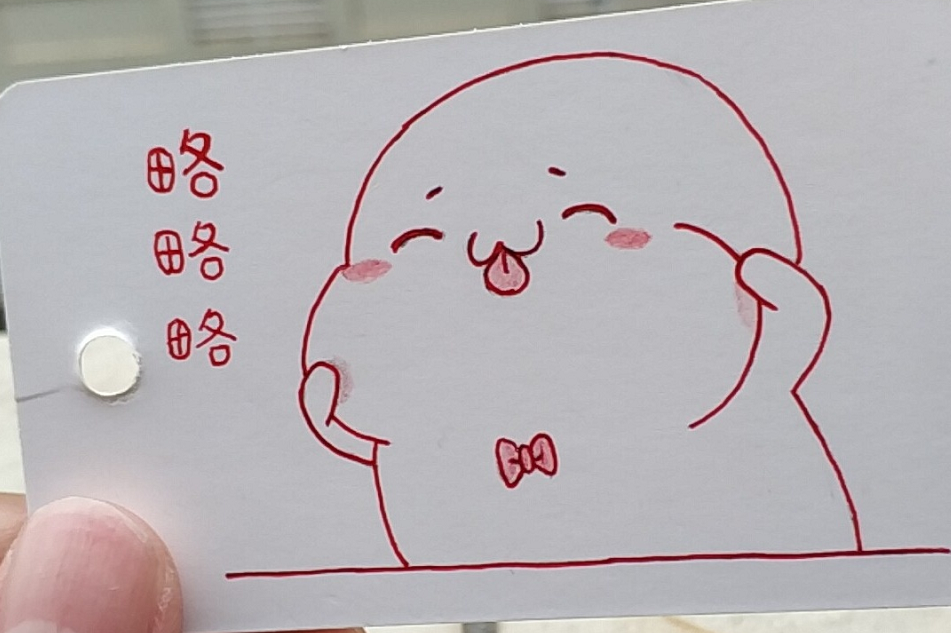 略
略
略